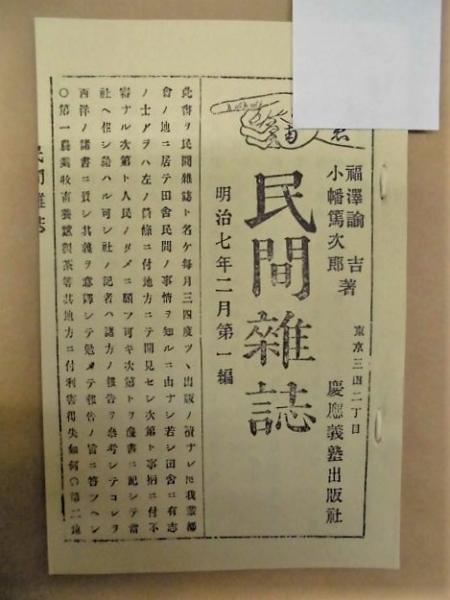 福澤諭吉著
小幡篤次郎
東京三田二丁目
慶應義塾出版社
民間雜誌
明治七年二月第一編
此書ヲ民間雜誌ト名ケ每月三四度ツヽ出版ノ積ナレ𪜈我輩都
會ノ地ニ居テ田舍民間ノ事情ヲ知ルニ由ナシ若シ田舍ニ有志
ノ士アラハ左ノ箇條ニ付地方ニテ聞見セシ次第ト事柄ニ付不
審ナル次第ト人民ノタメニ願フ可キ次第トヲ書ニ記シテ當
社ヘ送ハル可シ社ノ記者ハ諸方ノ報告ヲ參考シテコレヲ
西洋ノ諸書ニ質シ其義ヲ意譯シテ勉メテ報告ノ旨ニ答ツヘシ
○第一農業牧畜養蠶製茶等其地方ニ付利害得失如何○第二
民間雜誌